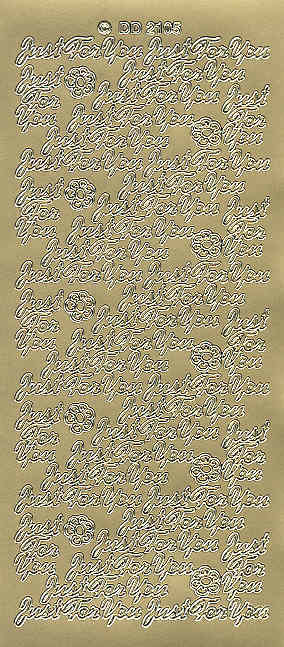 © DD 2105
Just For You Just For You
Just Just For You
For Just For You Just
You Just For You For
Just For You You
Just For You Just For You
Just Just For You
For Just For You Just
You Just For You For
Just For You You
Just For You Just For You
Just Just For You
For Just For You Just
You Just For You For
Just For You You
Just For You Just For You
Just Just For You
For Just For You Just
You Just For You For
Just For You You
Just For You Just For You
Just Just For You
For Just For You Just
You Just For You For
Just For You You
Just For You Just For You